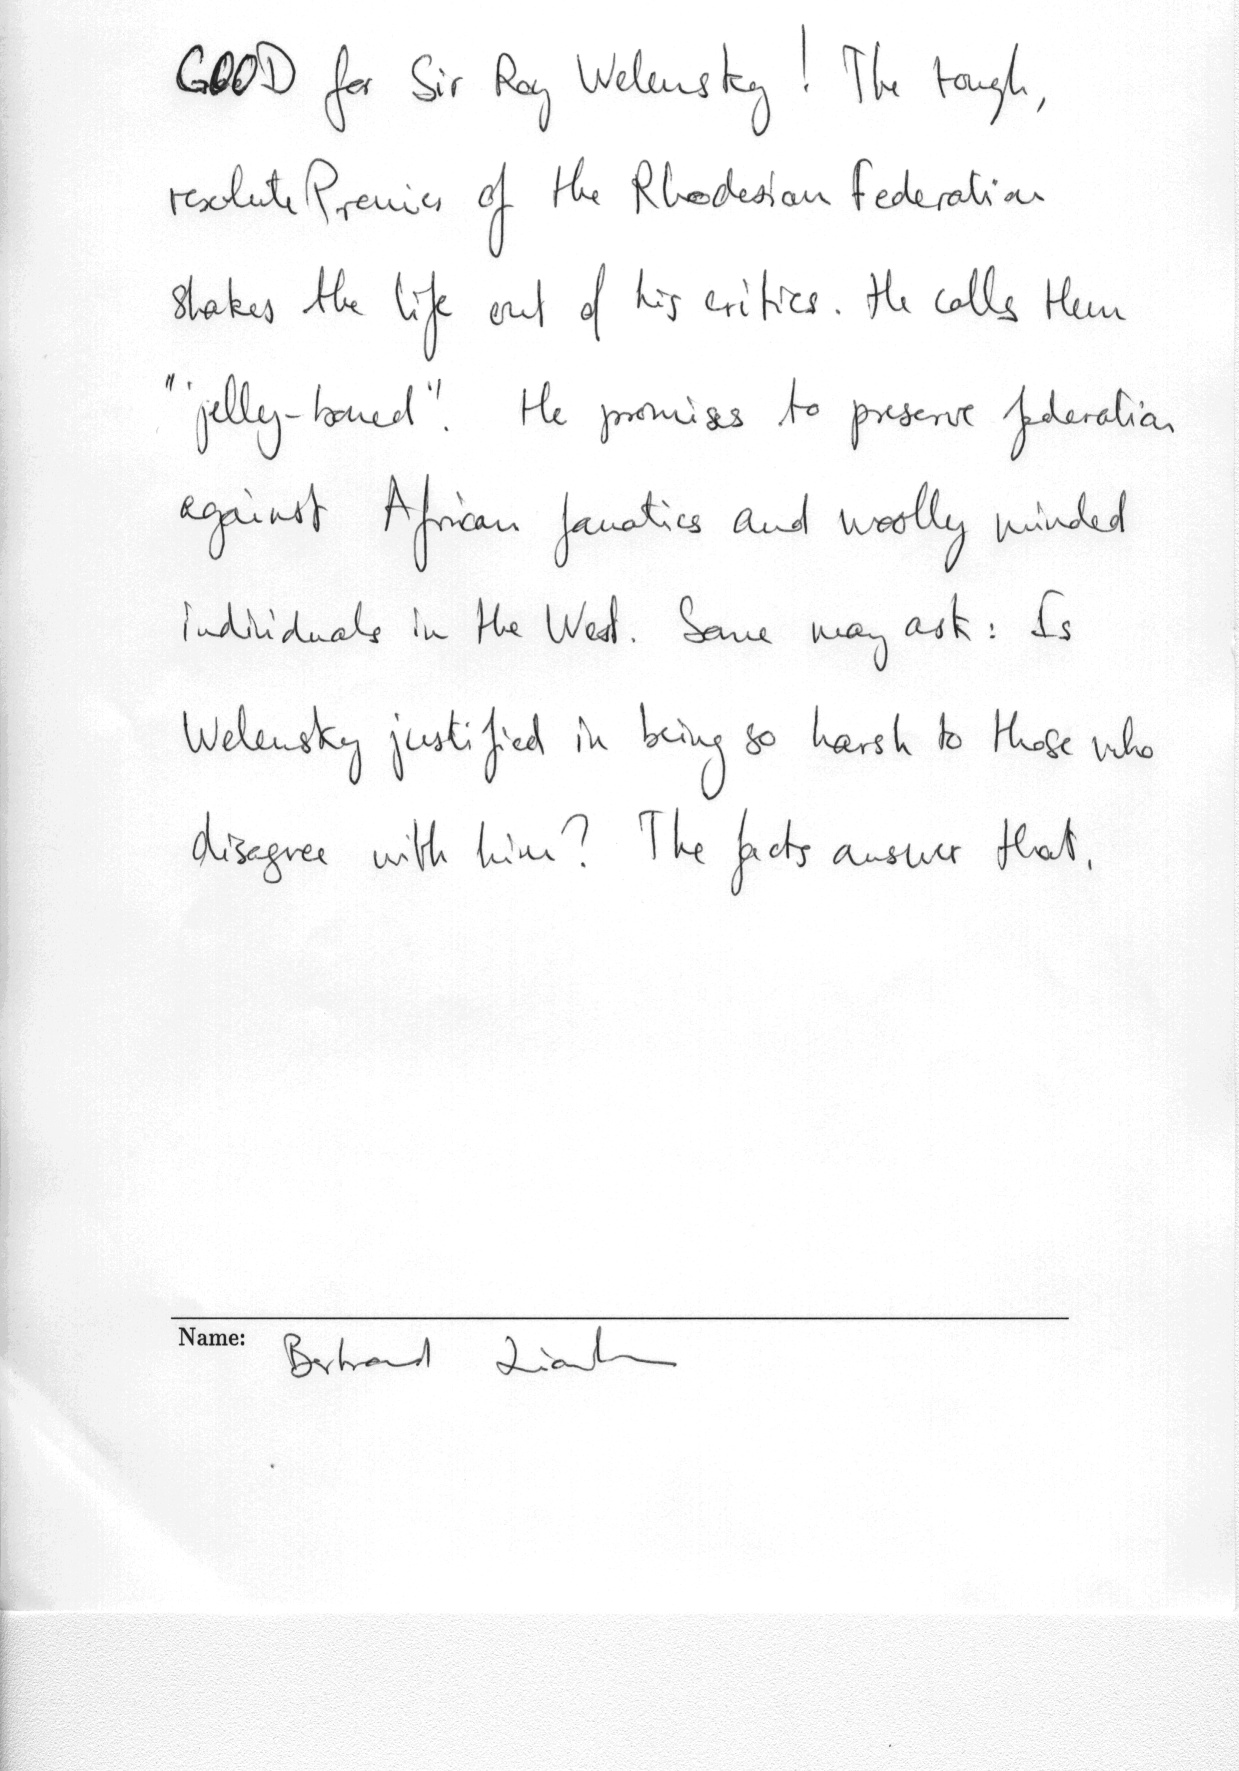 GOOD for Sir Roy Welensky! The tough,
resolute Premier of the Rhodesian Federation
shakes the life out of his critics. He calls them
"jelly-boned". He promises to preserve federation
against African fanatics and woolly minded
individuals in the West. Some may ask: Is
Welensky justified in being so harsh to those who
disagree with him? The facts answer that.
Name: Bertrand